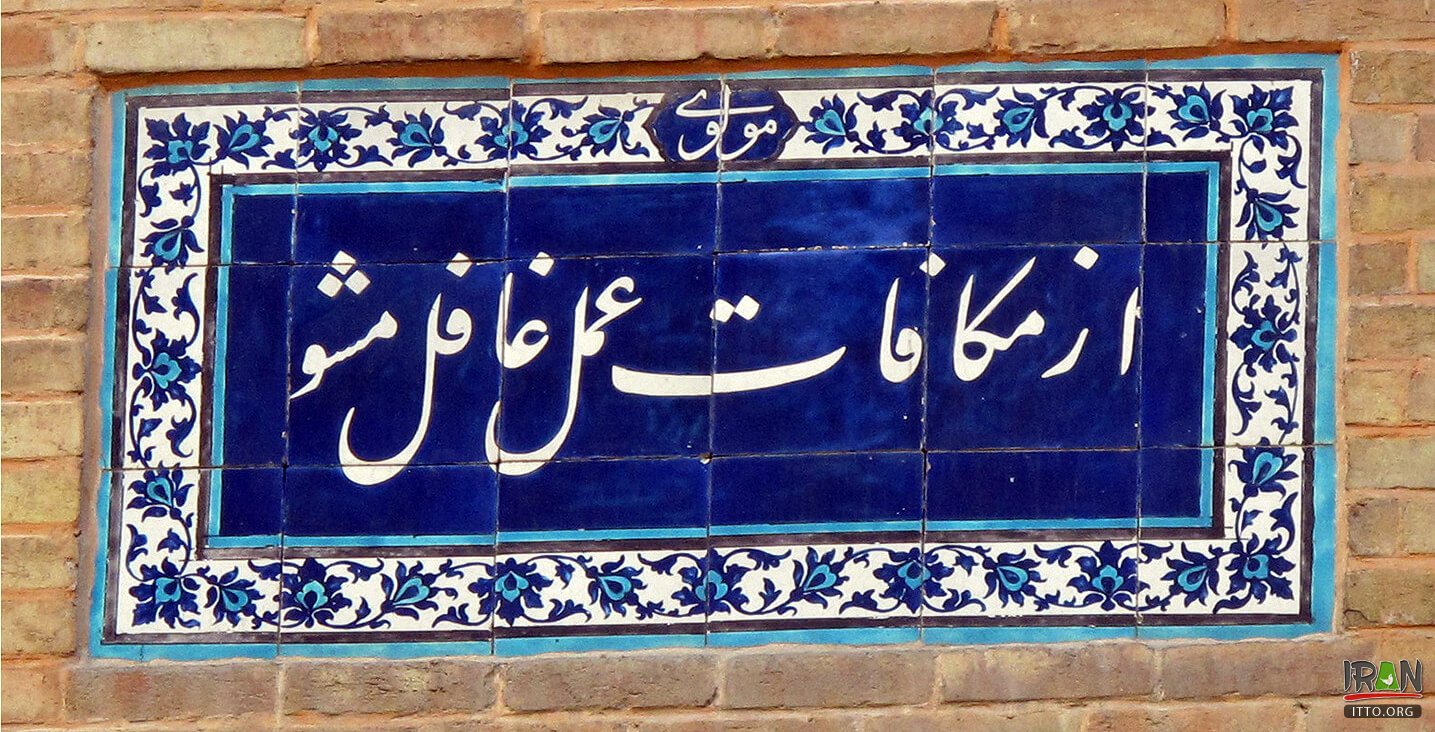 مولوی
از مکافات عمل غافل مشو
IRAN
ITTO.ORG